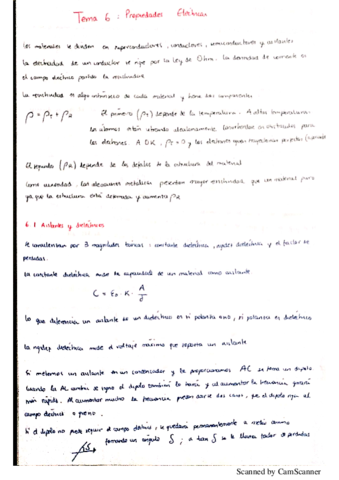 Tema 6: Propiedades Eléctricas
Los materiales se dividen en superconductores, conductores, semiconductores y aislantes
La electricidad de un conductor se rige por la Ley de Ohm. La densidad de corriente es
el campo eléctrico partido la resistividad
La resistividad es algo intrínseco de cada material y tiene dos componentes
ρ = ρT + ρR El primero (ρT) depende de la temperatura. A altas temperaturas
los átomos están vibrando
los electrones. A 0K, ρT = 0 y los electrones
El segundo (ρR) depende de los defectos de la estructura del material
las aleaciones metálicas presentan mayor resistividad que un material puro
ya que la estructura está deformada y aumenta ρR
6.1 Aislantes y dieléctricos
Se caracterizan por 3 magnitudes: constante dieléctrica, rigidez dieléctrica y el factor de
pérdidas.
La constante dieléctrica mide la capacidad de un material como aislante
C = ε0 · K · A/d
Lo que diferencia un aislante de un dieléctrico es si polariza o no, si polariza es dieléctrico
La rigidez dieléctrica mide el voltaje máximo que soporta un aislante
Si metemos un aislante en un condensador y le proporcionamos AC se forma un dipolo
cuando la AC cambia de signo el dipolo también lo hará y al aumentar la frecuencia girará
más rápido. Al aumentar mucho la frecuencia pueden darse dos casos, que el dipolo siga al
campo eléctrico o pare.
Si el dipolo no puede seguir el campo eléctrico, se quedará permanentemente
formando un ángulo δ; a tan δ se le llama factor de pérdidas
Scanned by CamScanner